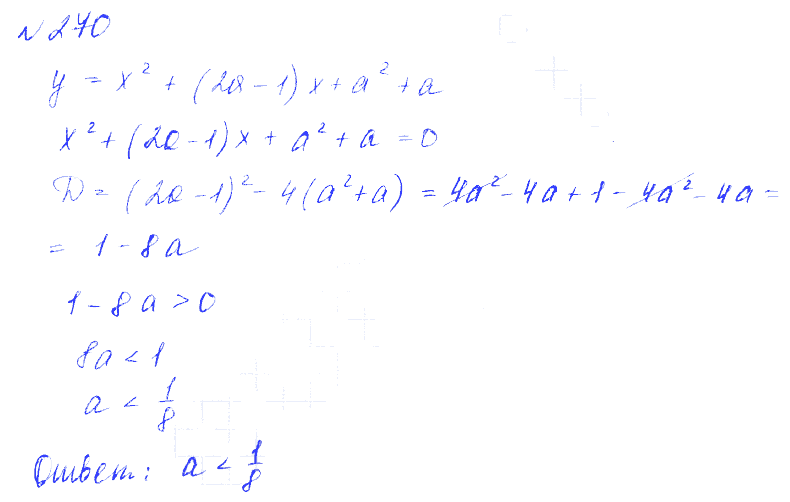 № 270
y = x² + (2a - 1) x + a² + a
x² + (2a - 1) x + a² + a = 0
D = (2a - 1)² - 4 (a² + a) = 4a² - 4a + 1 - 4a² - 4a =
= 1 - 8a
1 - 8a > 0
8a < 1
a < 1/8
Ответ: a < 1/8